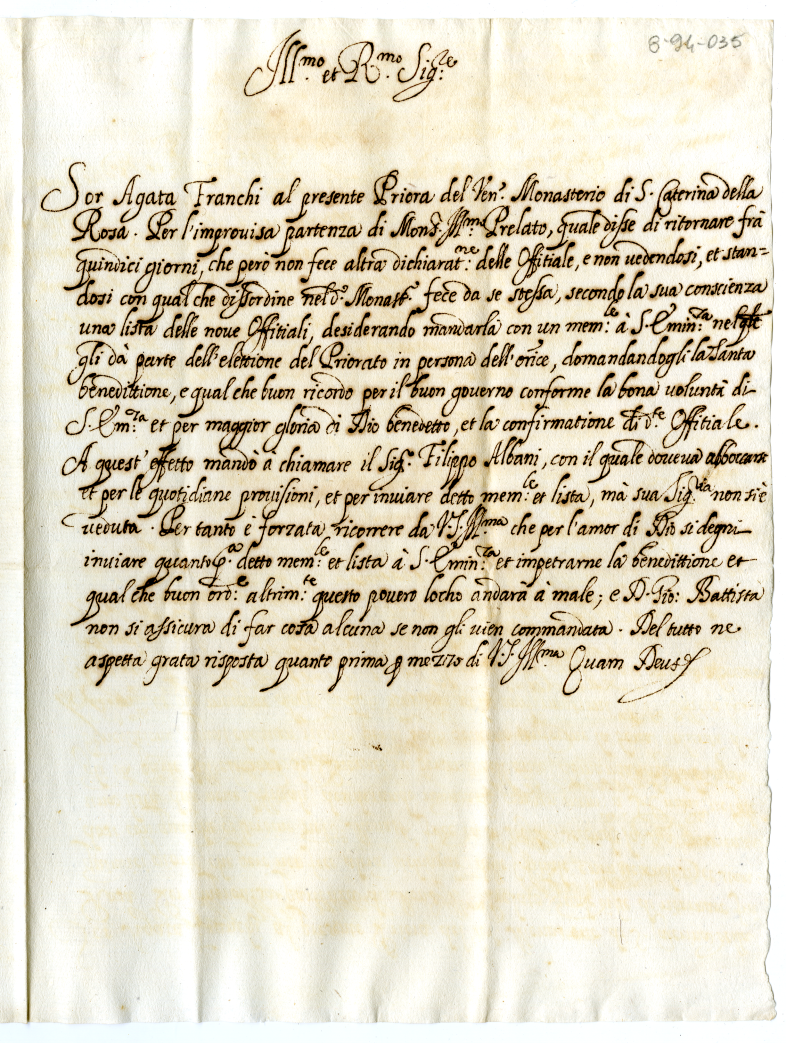 8-94-035
Ill.mo et R.mo Sig.re
Sor Agata Franchi al presente Priora del Ven.e Monasterio di S. Caterina della
Rosa. Per l'improvisa partenza di Mons.r Ill.mo Prelato, quale disse di ritornare frà
quindici giorni, che però non fece altra dichiarat.ne delle Offitiale, e non vedendosi, et stan=
dosi con qualche dissordine nel d.o Monast.o fece da se stessa, secondo la sua conscienza
una lista delle nove Offitiali, desiderando mandarla con un mem.le à S. Emin.za nel
gli dà parte dell'elettione del Priorato in persona dell'or.ice, domandandogli la Santa
benedittione, e qualche buon ricordo per il buon governo conforme la bona voluntà di
S. Em.za et per maggior gloria di Dio benedetto, et la confirmatione di d.te Offitiale.
A quest'effetto mandò à chiamare il Sig.r Filippo Albani, con il quale doveva abboccarse
et per le quotidiane provisioni, et per inviare detto mem.le et lista, mà sua Sig.ria non si è
veduta. Per tanto è forzata ricorrere da V.S. Ill.ma che per l'amor di Dio si degni
inviare quanto p.a detto mem.le et lista à S. Emin.za et impetrarne la benedittione et
qualche buon ord.e altrim.te questo povero locho andarà à male; e D. Gio: Battista
non si assicura di far cosa alcuna se non gli vien commandata. Del tutto ne
aspetta grata risposta quanto prima p mezzo di V.S. Ill.ma Quam Deus